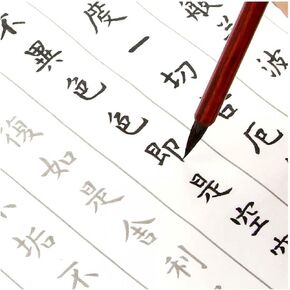 波
度一切厄
不異色色即是空空
復如是舍利
垢不